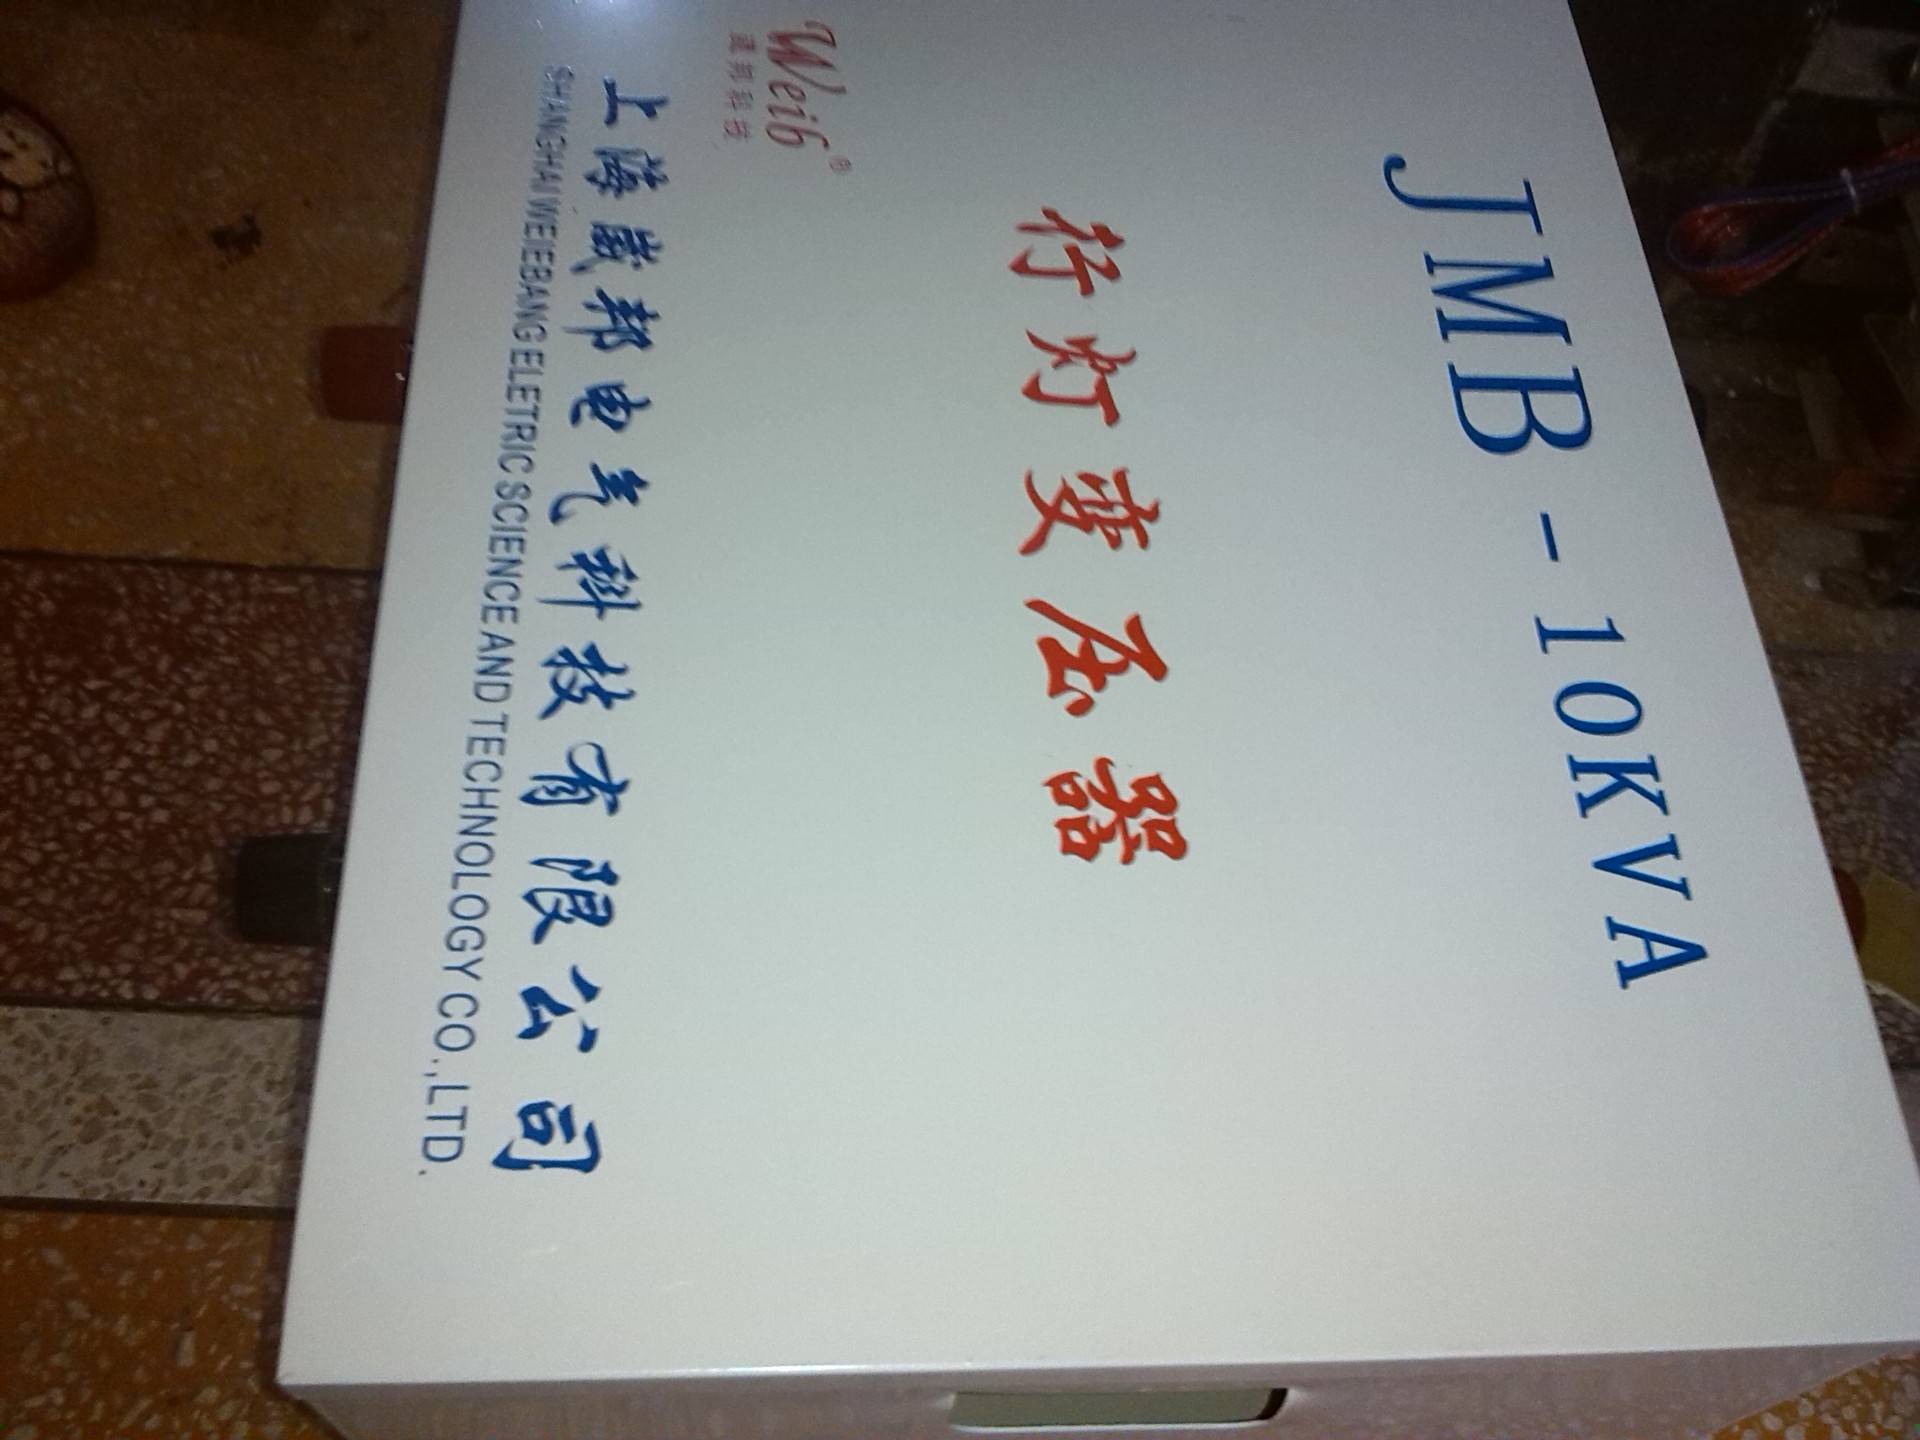 JMB-10KVA
行灯变压器
Weib®
威邦科技
上海威邦电气科技有限公司
SHANGHAI WEIEBANG ELETRIC SCIENCE AND TECHNOLOGY CO.,LTD.